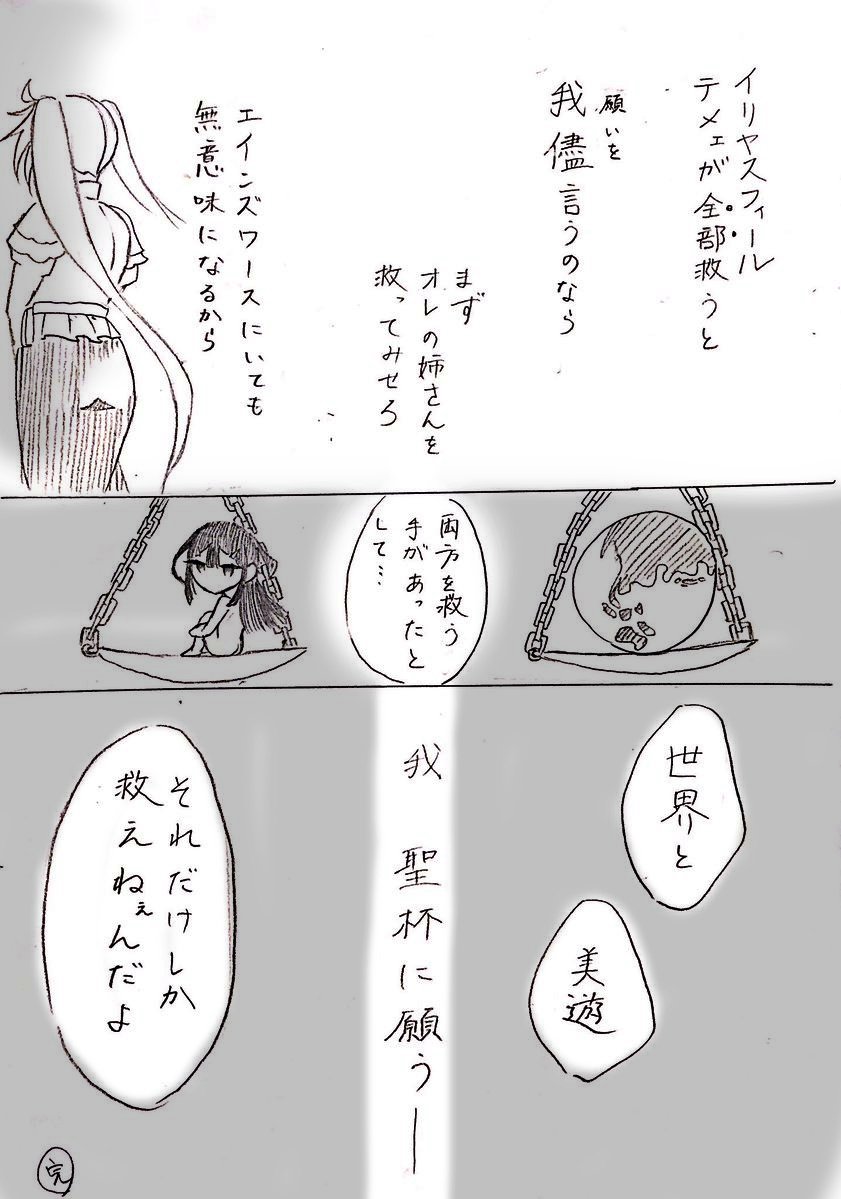 イリヤスフィール
テメェが全部救うと
願いを
我儘言うのなら
まず
オレの姉さんを
救ってみせろ
エインズワースにいても
無意味になるから
両方を救う
手があったと
して…
世界と
美遊
我 聖杯に願う―
それだけしか
救えねぇんだよ
完